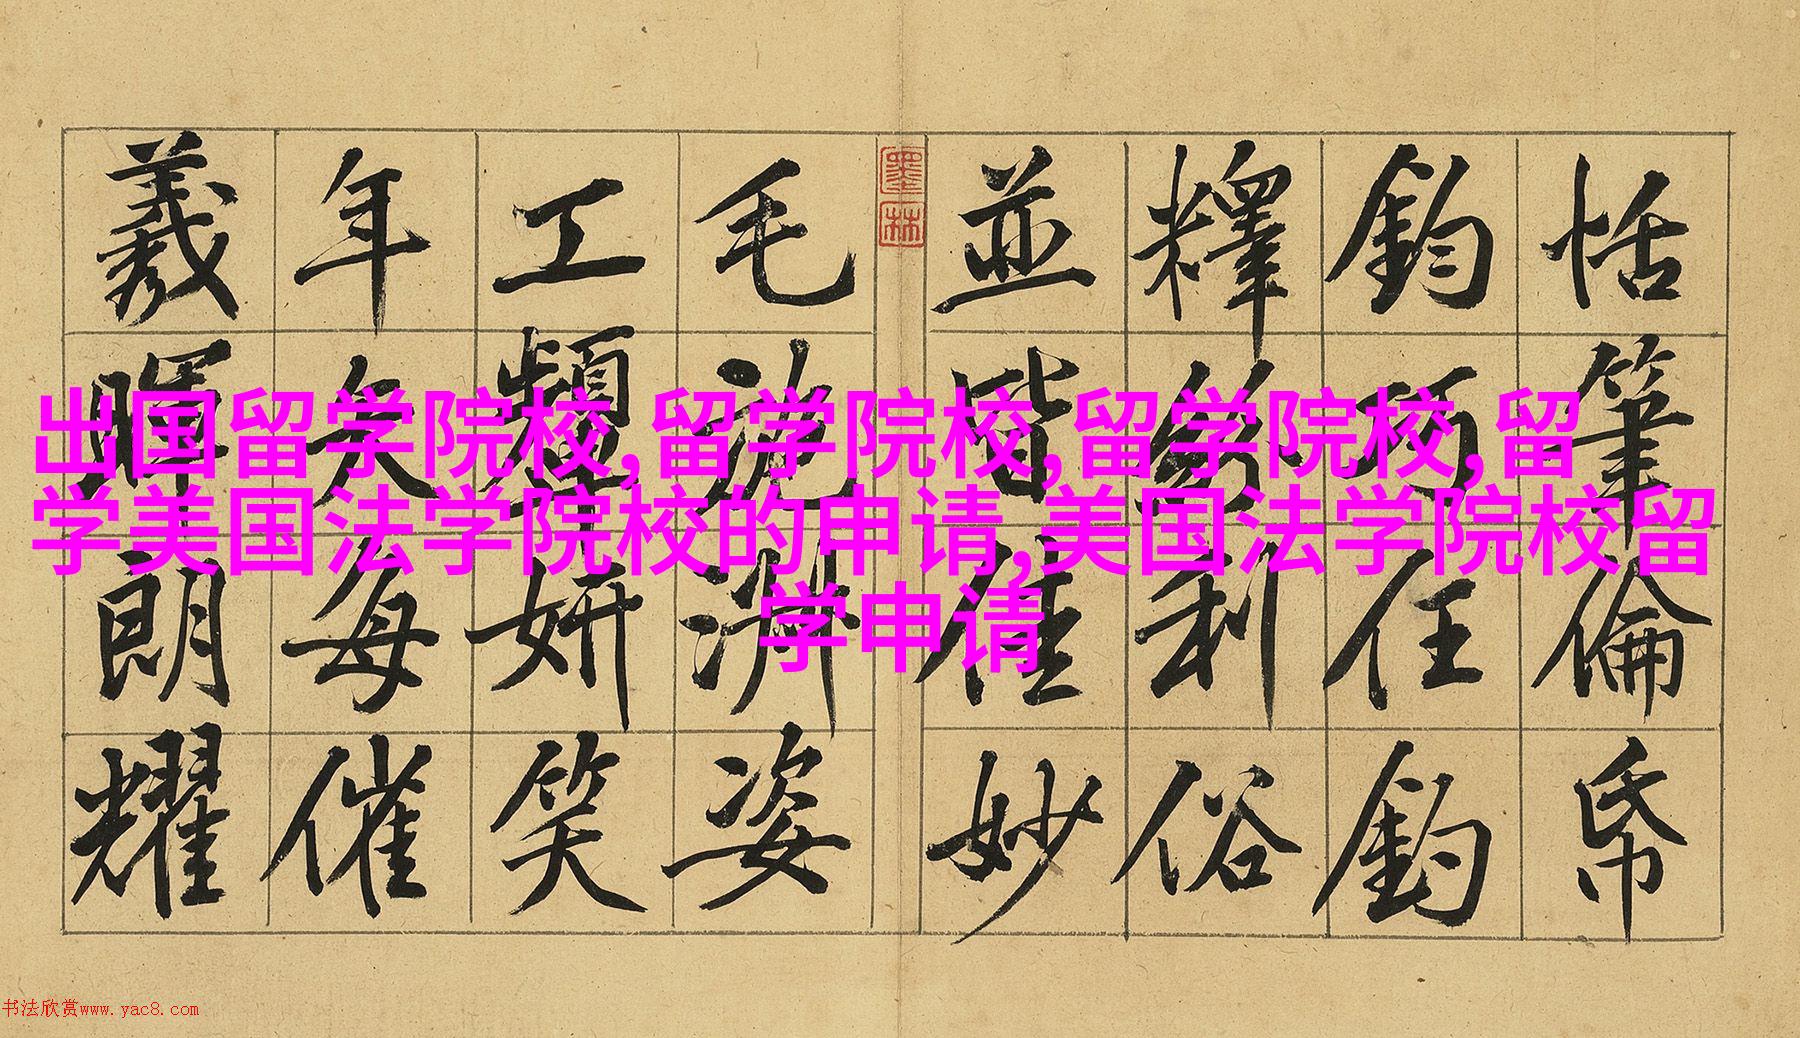 出国留学院校,留学院校,留学院校,留
学美国法学院校的申请,美国法学院校留
学申请
恬筆倫帋
鈞巧任釣
釋紛利俗
並皆佳妙
墨林
毛施淑姿
工顰妍笑
年矢每催
羲暉朗耀
书法欣赏www.yac8.com